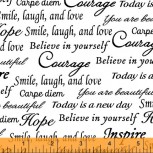 Carpe diem Courage Today
Smile, laugh, and love You are beau
Hope Smile, laugh, and love
Believe in yourself Carpe diem
Courage Believe in your
Smile, laugh, and love
beautiful Today is a new day Smile,
Carpe diem You are beautiful
diem Hope Today is a new da
Believe in yourself
Smile, laugh, and love Inspire